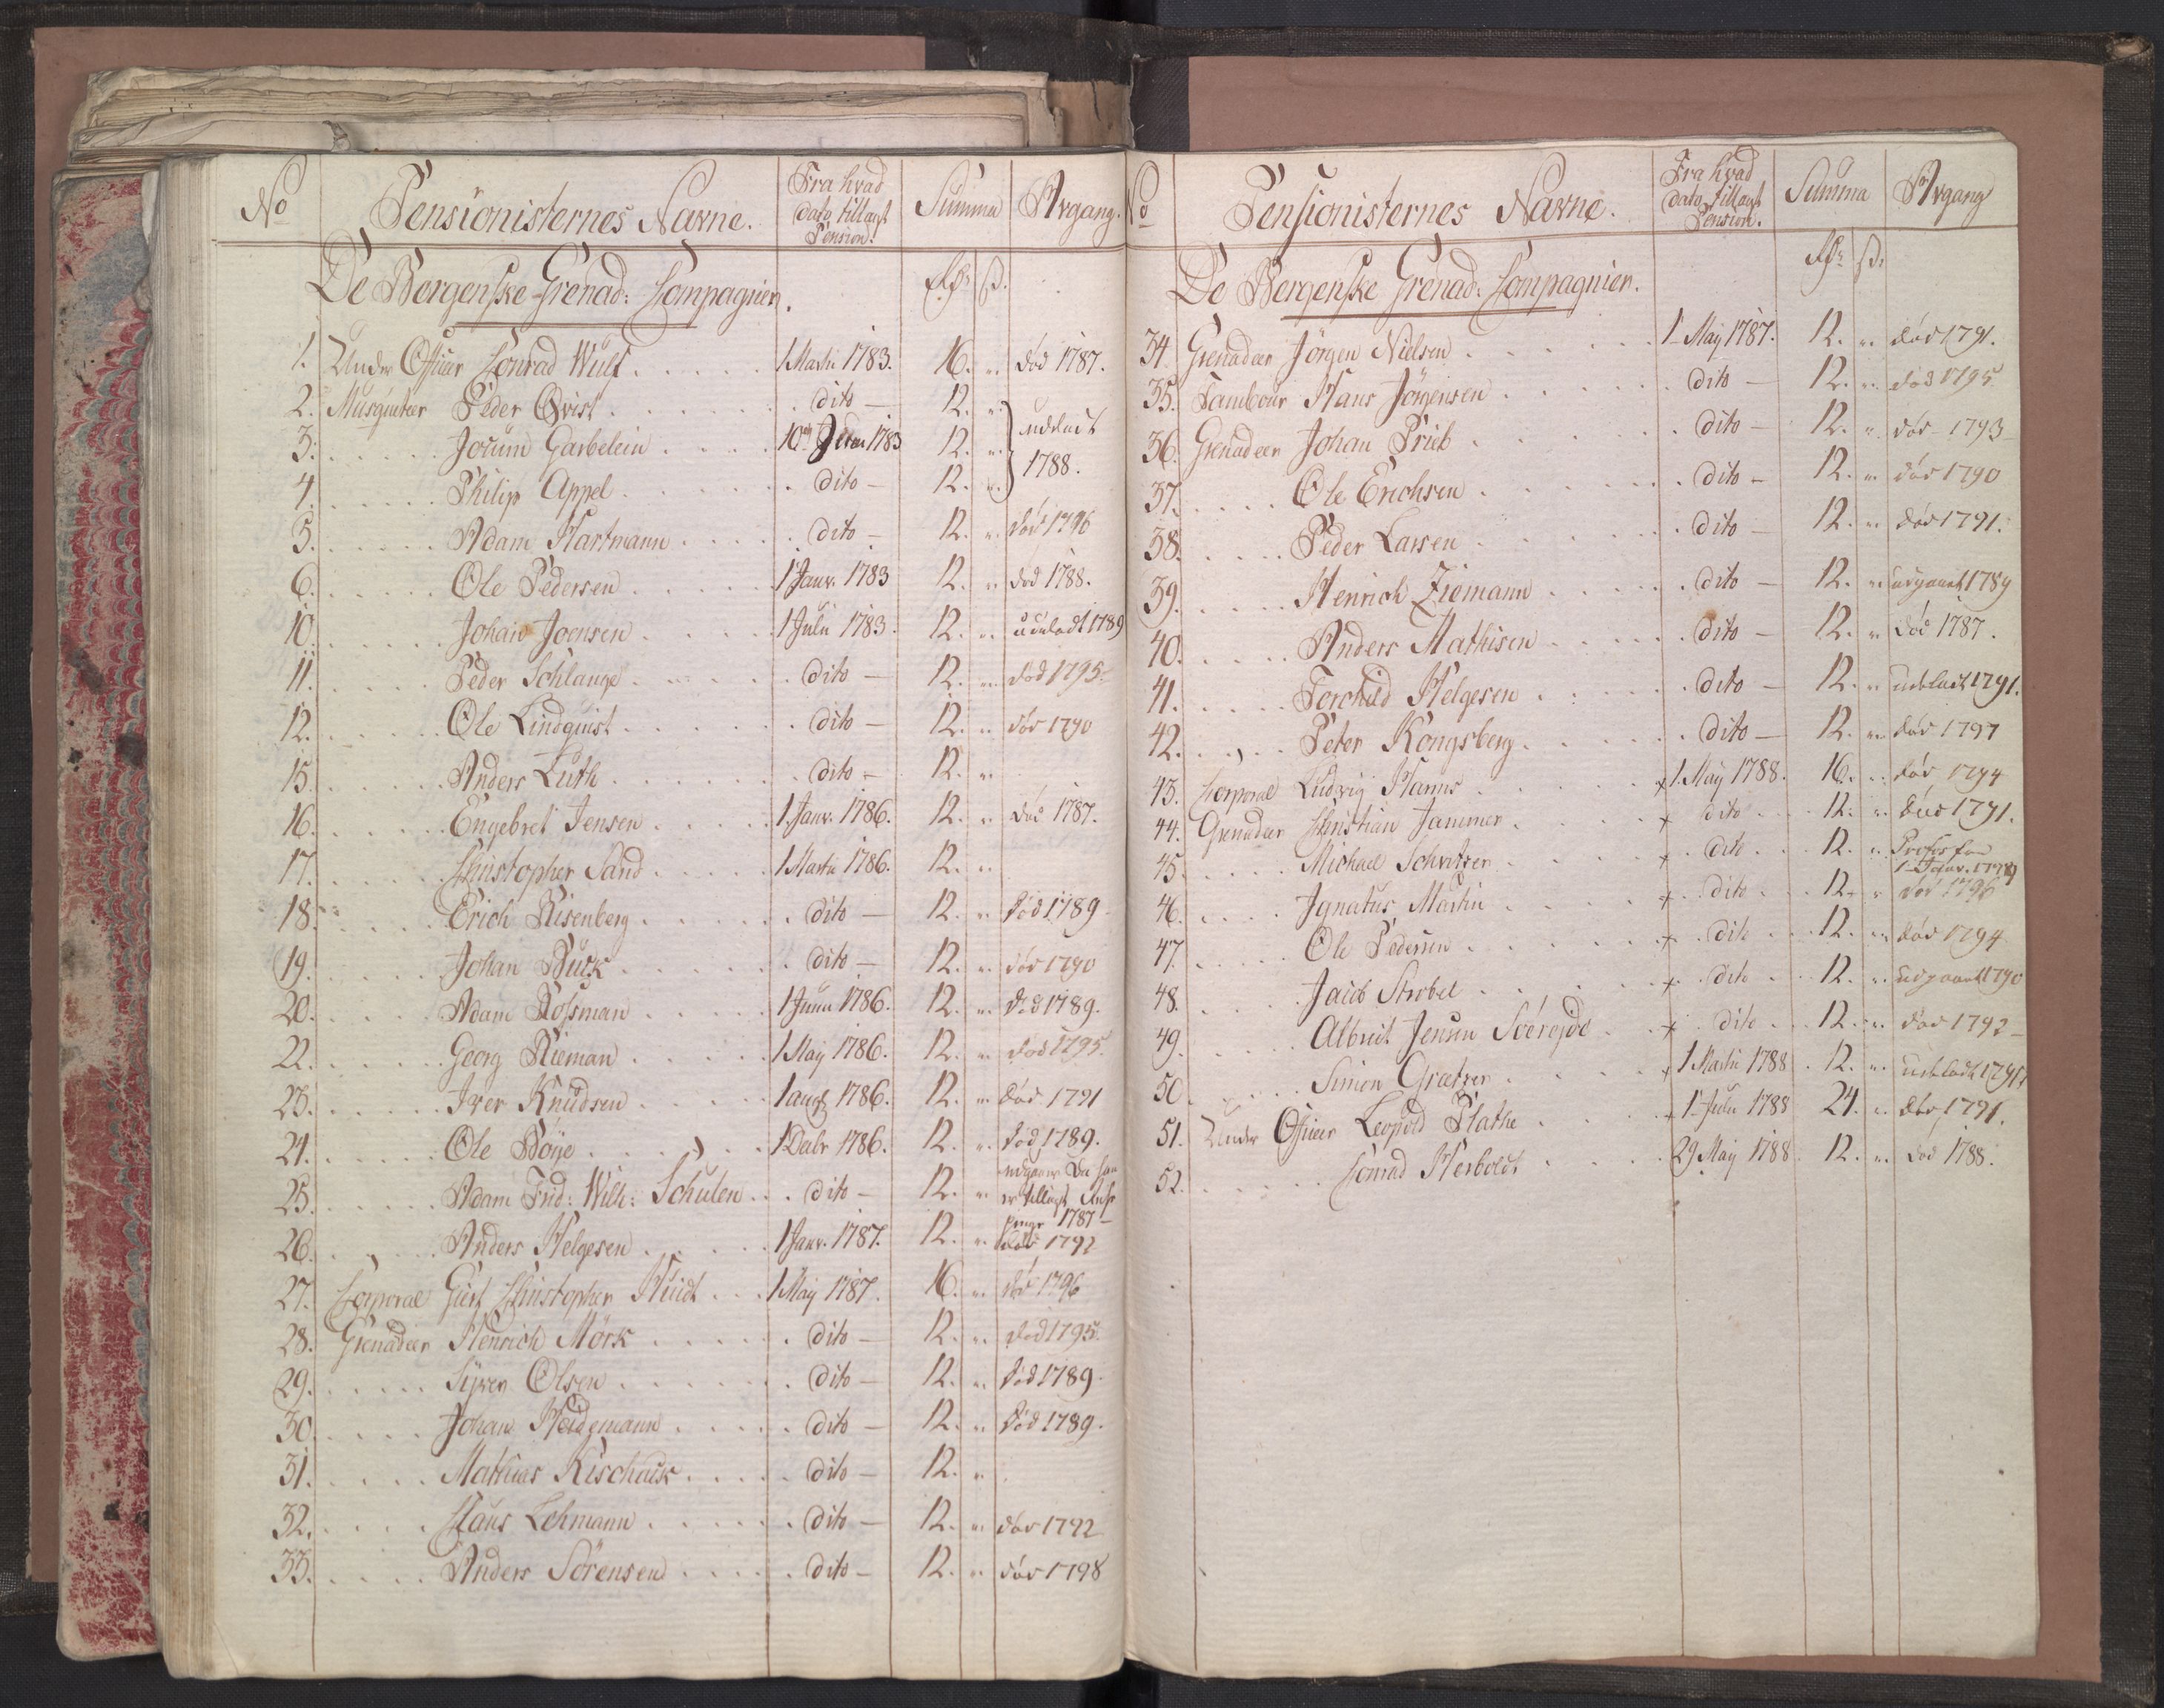 No Pensionisternes Navne. Fra hvad dato tillagt Pension. Summa Afgang.
De Bergenske Grenad: Compagnier. Rdr ß.
1. Under Officer Conrad Wulf 1 Martii 1783. 16. " død 1787.
2. Musqueteer Peder Qvist dito 12. " udladt 1788.
3. Jorum Garbelein 10de 1783 12. "
4. Philip Appel dito 12. "
5. Adam Hartmann dito 12. " død 1796
6. Ole Pedersen 1 Janv. 1783 12. " død 1788.
10. Johan Joensen 1 Julii 1783. 12. " udladt 1789
11. Peder Schlange dito 12. " død 1795
12. Ole Lindquist dito 12. " død 1790
15. Anders Luth dito 12. "
16. Engebret Jensen 1 Janv. 1786. 12. " død 1787.
17. Christopher Sand 1 Martii 1786. 12. "
18. Erich Risenberg dito 12. " død 1789
19. Johan Buck dito 12. " død 1790
20. Adam Rossman 1 Junii 1786. 12. " død 1789.
22. Georg Rieman 1 May 1786. 12. " død 1795.
23. Iver Knudsen 1 aug 1786. 12. " død 1791
24. Ole Böye 1 Dcbr 1786. 12. " død 1789.
25. Adam Frid: Wilh: Schulen dito 12. " udgaaer Da han er tillagt penge 1787
26. Anders Helgesen 1 Janv. 1787. 12. " død 1792
27. Corporal Giert Christopher 1 May 1787. 16. " død 1796
28. Grenadeer Henrich Mörk dito 12. " død 1795.
29. Syver Olsen dito 12. " død 1789
30. Johan Heidgmann dito 12. " død 1789.
31. Mathias Kischack dito 12. "
32. Claus Lehmann dito 12. " død 1792
33. Anders Sörensen dito 12. " død 1798
No Pensionisternes Navne. Fra hvad dato tillagt Pension. Summa Afgang
De Bergenske Grenad: Compagnier. Rdr ß.
34. Grenadeer Jörgen Nielsen 1 May 1787. 12. " død 1791.
35. Tambour Hans Jörgensen dito 12. " død 1795
36. Grenadeer Johan Prieb dito 12. " død 1793
37. Ole Erichsen dito 12. " død 1790
38. Peder Larsen dito 12. " død 1791.
39. Henrich Ziemann dito 12. " udgaaet 1789
40. Anders Mathisen dito 12. " død 1787.
41. Torchild Helgesen dito 12. " udeladt 1791.
42. Peter Kongsberg dito 12. " død 1797
43. Corporal Ludvig Hanns + 1 May 1788. 16. " død 1794
44. Grenadeer Christian Jammer + dito 12. " død 1791.
45. Michael Schvitzer + dito 12. " 1 Janv.
46. Ignatus Martin + dito 12. " død 1796
47. Ole Pedersen + dito 12. " død 1794
48. Jacob Strobel + dito 12. " udgaaet 1790
49. Albrict Jensen + dito 12. " død 1792
50. Simon Grætzer + 1 Martii 1788 12. " udeladt 1791
51. Under Officer Leopold Plathe + 1 Julii 1788 24. " død 1791.
52. Conrad Herboldt 29 May 1788 12. " død 1788.